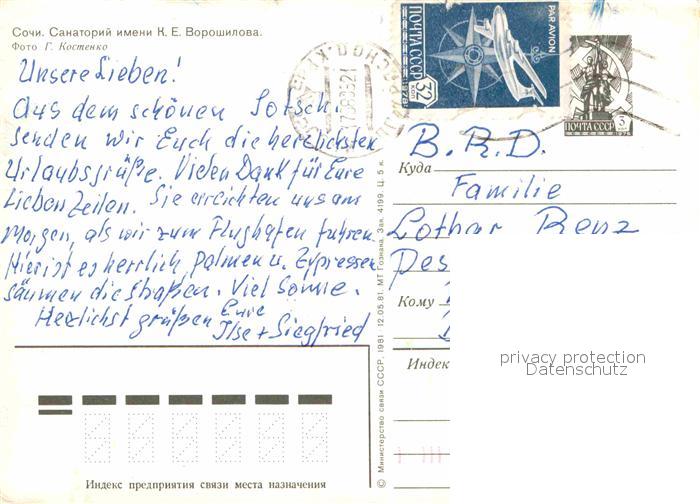 Сочи. Санаторий имени К. Е. Ворошилова.
Фото Г. Костенко
Unsere Lieben!
Aus dem schönen Sotschi
senden wir Euch die herzlichsten
Urlaubsgrüße. Vielen Dank für Eure
lieben Zeilen. Sie erreichten uns am
Morgen, als wir zum Flughafen fuhren.
Hier ist es herrlich, Palmen u. Zypressen
säumen die Straßen. Viel Sonne.
Herzlichst grüßen Eure
Ilse + Siegfried
Индекс предприятия связи места назначения
© Министерство связи СССР, 1981 12.05.81. МТ Гознака. Зак. 4199. Ц. 5 к.
ПОЧТА СССР
PAR AVION
32 коп
1978
ПОЧТА СССР
3
B. R. D.
Куда
Familie
Lothar Renz
Des
Кому
Индекс
privacy protection
Datenschutz